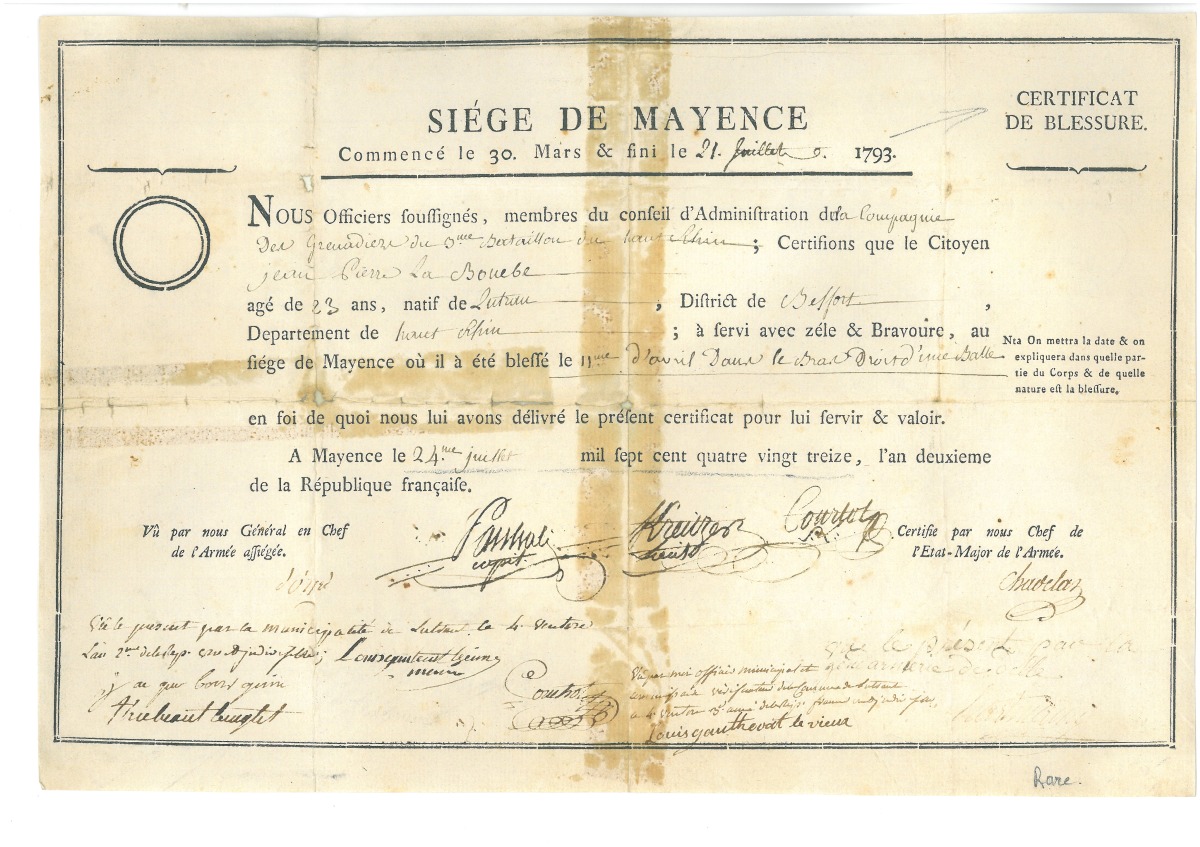 SIÉGE DE MAYENCE
Commencé le 30. Mars & fini le 21. Juillet 1793.
CERTIFICAT
DE BLESSURE.
NOUS Officiers souſſignés, membres du conſeil d'Adminiſtration de la Compagnie
Des Grenadiers du 3me Battaillon du haut Rhin ; Certifions que le Citoyen
Jean Pierre La Bouebe
agé de 23 ans, natif de ; Diſtrict de Belfort ,
Departement de haut Rhin ; à ſervi avec zéle & Bravoure, au
ſiége de Mayence où il à été bleſſé le 11me d'avril Dans le Bras Droit d'une Balle
Nta On mettra la date & on
expliquera dans quelle par-
tie du Corps & de quelle
nature eſt la bleſſure.
en foi de quoi nous lui avons délivré le préſent certificat pour lui ſervir & valoir.
A Mayence le 24me juillet mil ſept cent quatre vingt treize, l'an deuxieme
de la République françaiſe.
Vû par nous Général en Chef
de l'Armée aſſiégée.
Certifie par nous Chef de
l'Etat-Major de l'Armée.
Kreutzer
Courtot
Vû le présent par la municipalité de le 4 ventose
j'ai
Courtot
Vû par moi officier municipal et
Louis gautherat le vieux
vû le présent par la
gendarmerie de
Rare.